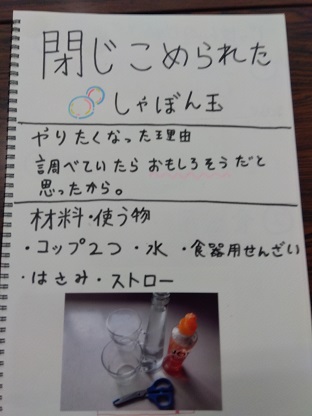 閉じこめられた
しゃぼん玉
やりたくなった理由
調べていたらおもしろそうだと
思ったから。
材料・使う物
・コップ2つ ・水 ・食器用せんざい
・はさみ・ストロー